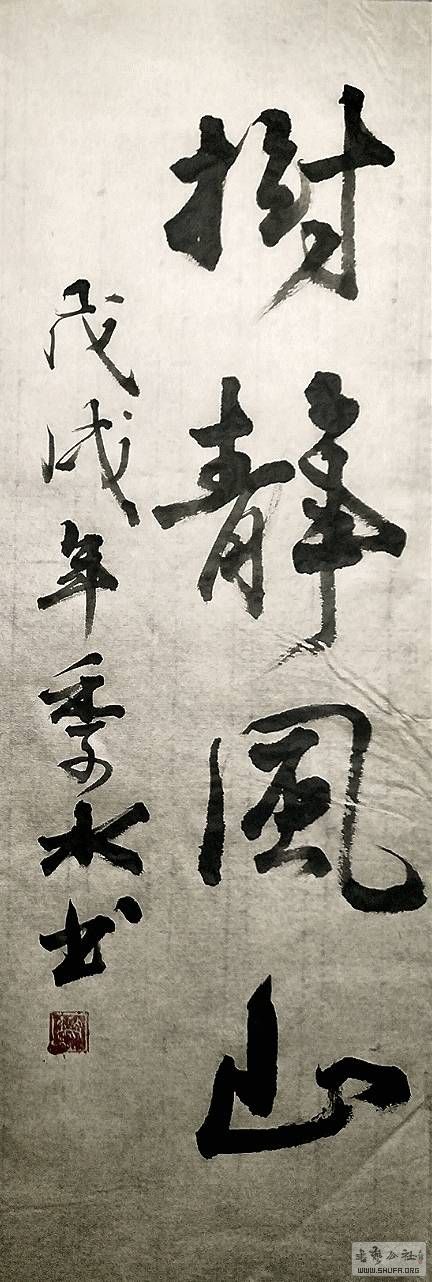 樹靜風山
戊戌年季水书
書藝公社
WWW.SHUFA.ORG